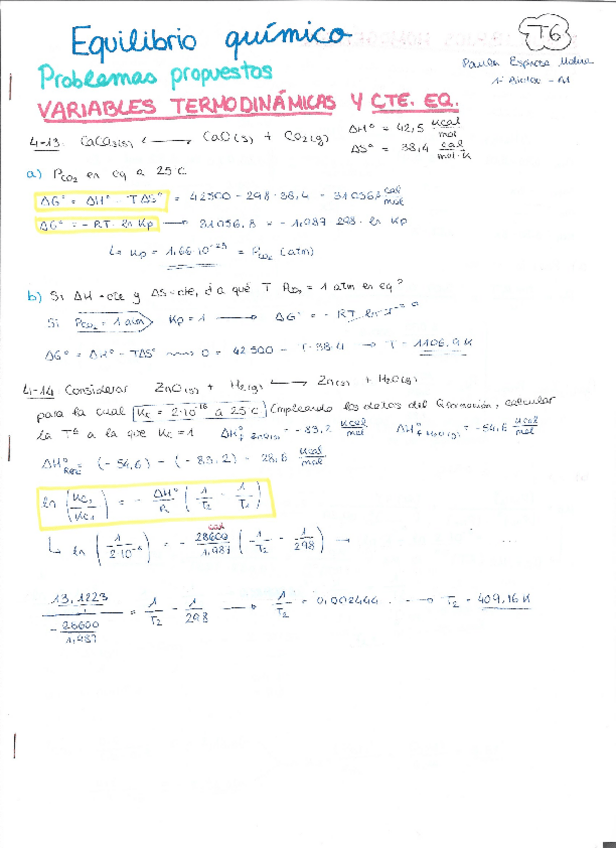 Equilibrio químico
T6
Problemas propuestos
VARIABLES TERMODINÁMICAS Y CTE. EQ.
4-13. CaCO3(s) <—> CaO(s) + CO2(g) ΔH° = 42,5 kcal/mol
ΔS° = 38,4 cal/mol·K
a) PCO2 en eq a 25°C
ΔG° = ΔH° - TΔS° = 42500 - 298·38,4 = 31056,8 cal/mol
ΔG° = -RT·ln Kp → 31056,8 = -1,987·298·ln Kp
↳ Kp = 1,66·10⁻²³ = PCO2 (atm)
b) Si ΔH = cte y ΔS = cte, d a qué T PCO2 = 1 atm en eq?
Si PCO2 = 1 atm Kp = 1 → ΔG° = -RT ln 1 = 0
ΔG° = ΔH° - TΔS° 0 = 42500 - T·38,4 → T = 1106,9 K
4-14. Considerar ZnO(s) + H2(g) <—> Zn(s) + H2O(g)
para la cual Kc = 2·10⁻¹⁶ a 25°C. Empleando los datos de formación, calcular
la Tª a la que Kc = 1 ΔH°f ZnO(s) = -83,2 kcal/mol ΔH°f H2O(g) = -54,6 kcal/mol
ΔH° = (-54,6) - (-83,2) = 28,6 kcal/mol
ln (Kc2/Kc1) = - ΔH°/R (1/T2 - 1/T1)
↳ ln (1/2·10) = - 28600 cal/1,987 (1/T2 - 1/298) →
13,1223 / (-28600/1,987) = 1/T2 - 1/298 → 1/T2 = 0,002444 → T2 = 409,16 K